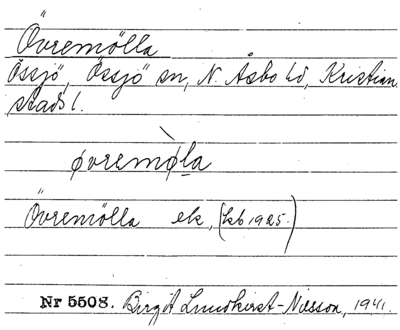 Övremölla
Össjö, Össjö sn, N. Åsbo hd, Kristian
stads l.
øvremø̀la
Övremölla ek, (kb 1925.)
Nr 5508. Birgit Lundkvist-Nilsson, 1941.